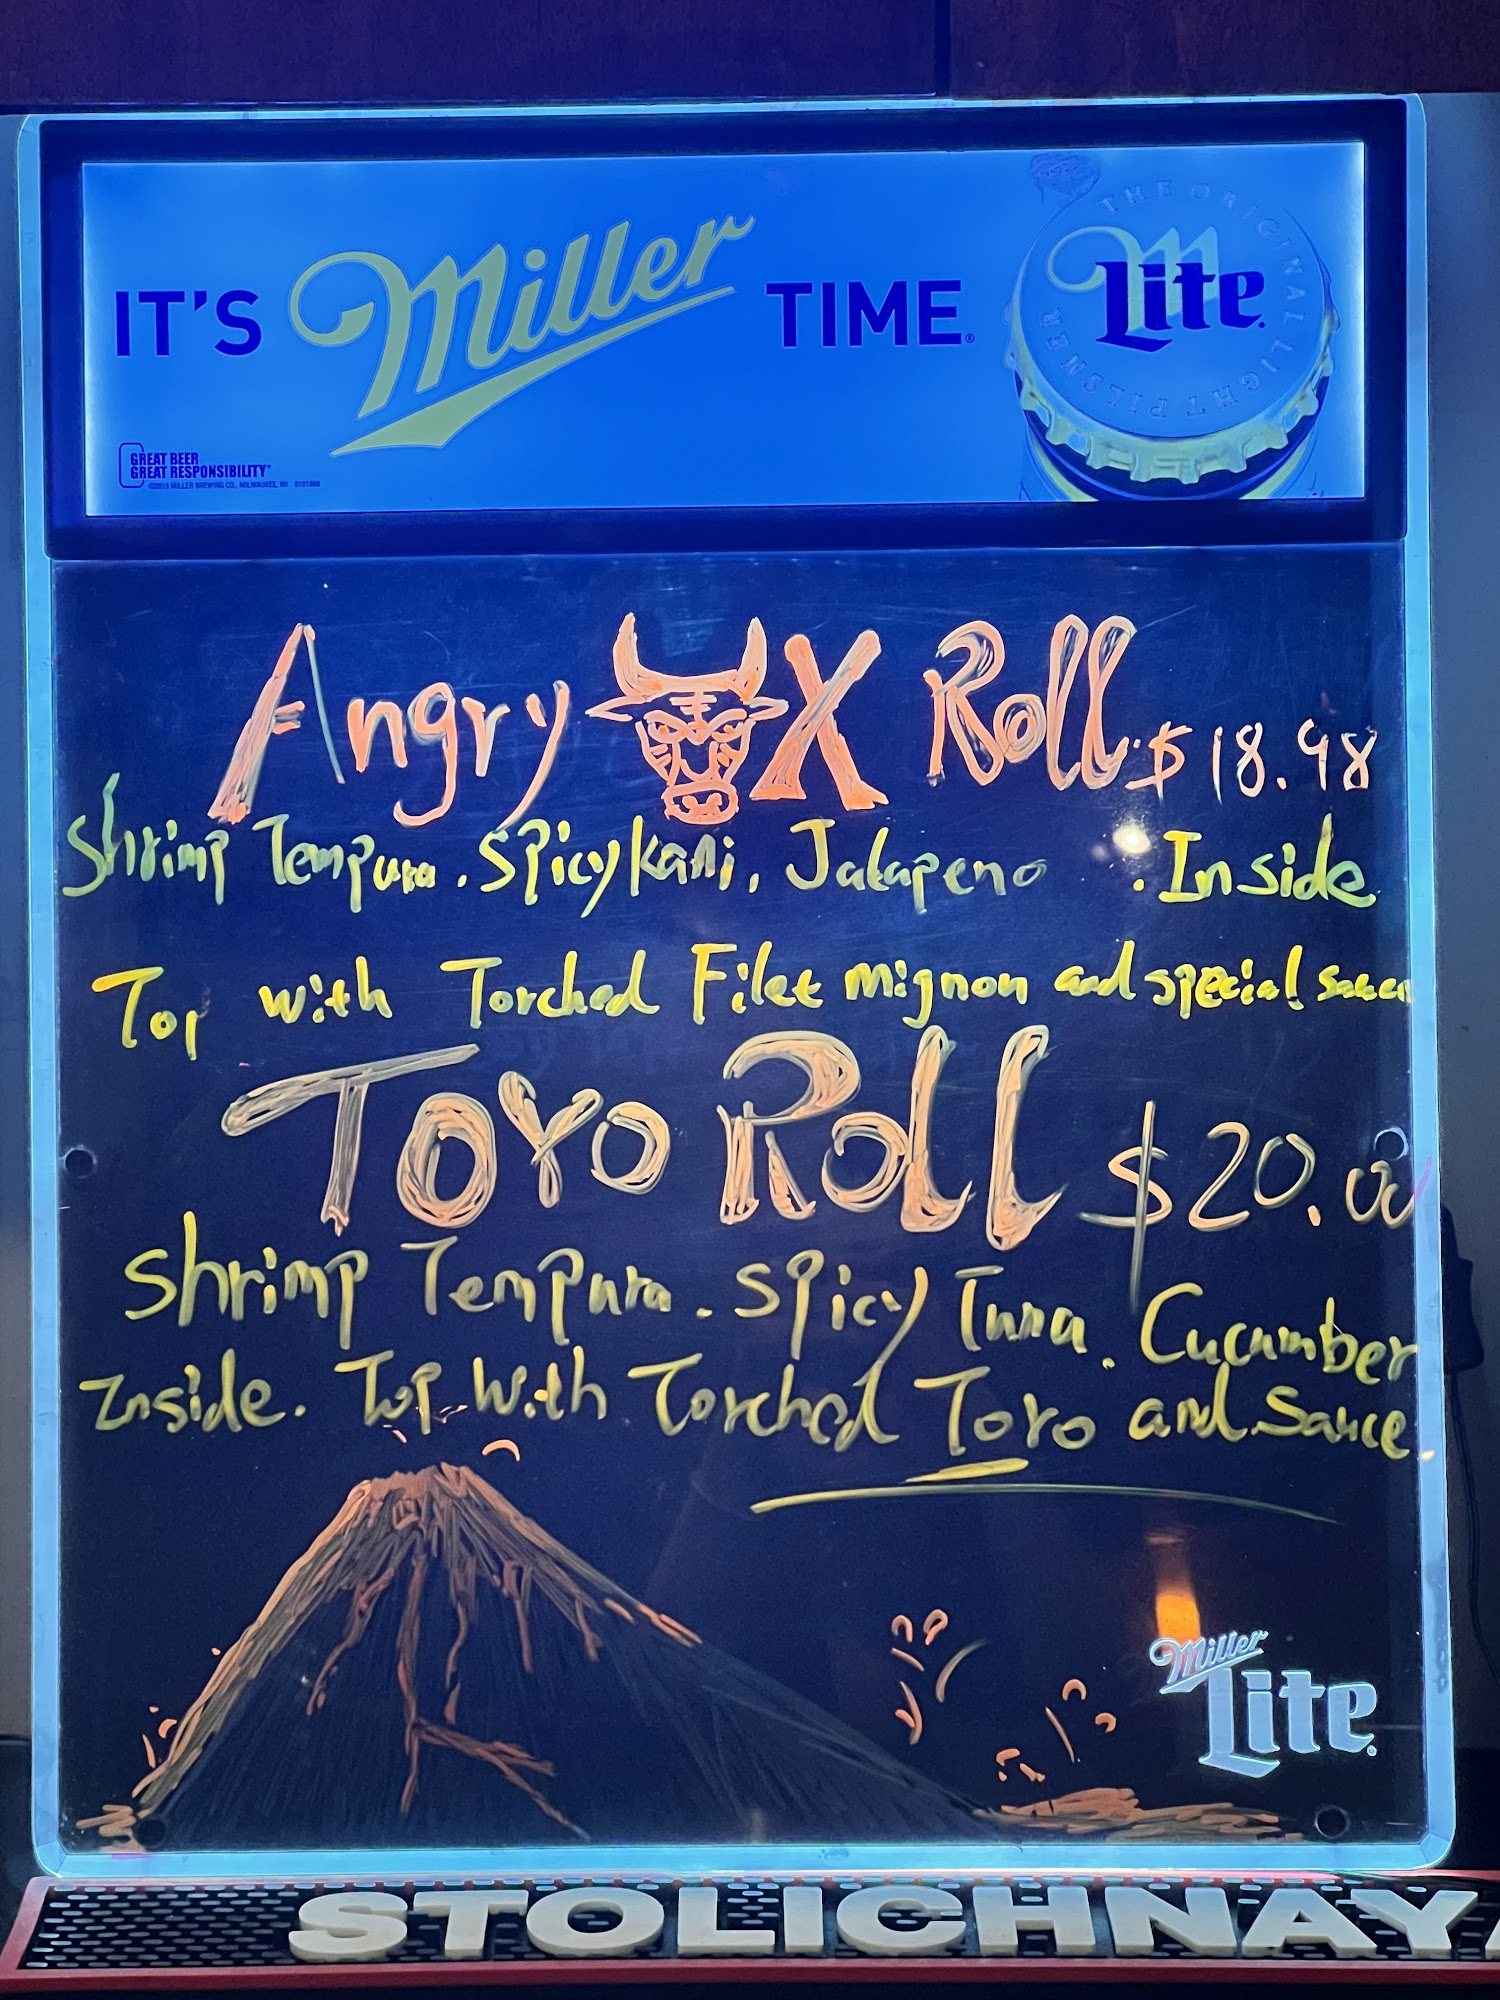 IT'S Miller TIME.®
THE ORIGINAL LIGHT PILSNER
Lite
GREAT BEER
GREAT RESPONSIBILITY®
©2015 MILLER BREWING CO., MILWAUKEE, WI
Angry X Roll $18.98
Shrimp Tempura. Spicy Kani, Jalapeno . Inside
Top with Torched Filet mignon and special sauce
TOYO Roll $20.00
Shrimp Tempura. Spicy Tuna. Cucumber
Inside. Top With Torched Toro and Sauce
Miller
Lite®
STOLICHNAYA